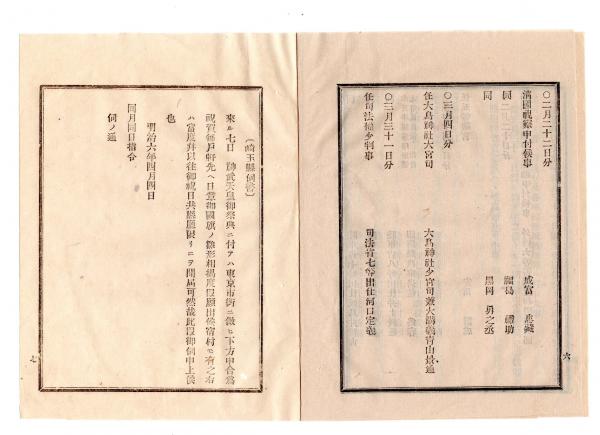 〇二月二十二日分
清國視察申付候事
同
同
成富
福島 禮助
黒岡 勇之丞
〇三月四日分
任大鳥神社大宮司
大鳥神社少宮司兼大講義青山景通
〇三月三十一日分
任司法權少判事
司法省七等出仕河口定義
六
(崎玉縣伺書)
來ル七日 神武天皇御祭典ニ付テハ東京市街ニ傚ヒ下方申合爲
祝賀毎戸軒先ヘ日章御國旗ノ雛形相揭度段願出候宿村モ有之右
ハ當度并以往御祝日共縣廳限リニテ聞屆可然哉此段御伺申上候
也
明治六年四月四日
同月同日指令
伺ノ通
七